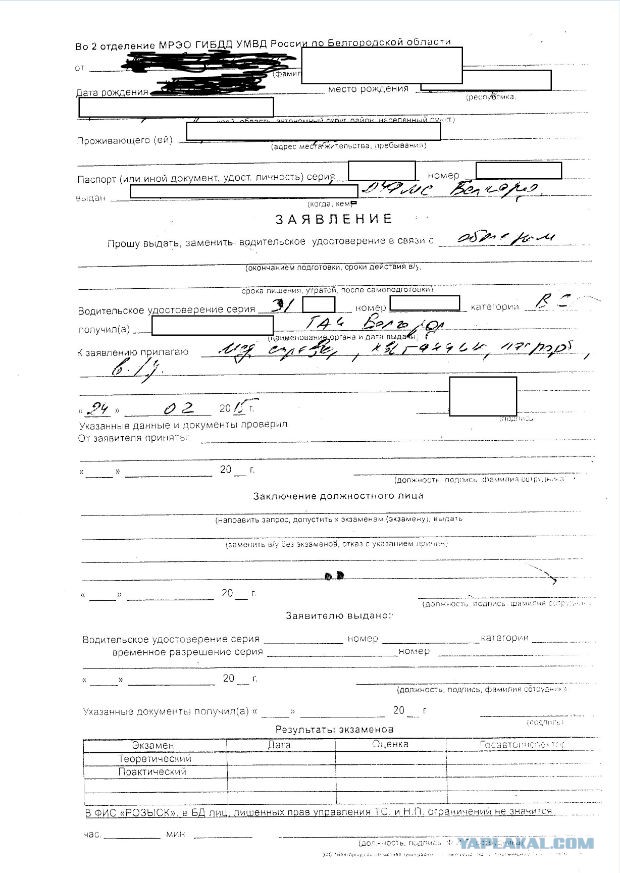 Во 2 отделение МРЭО ГИБДД УМВД России по Белгородской области
от
Дата рождения место рождения
(республика,
Проживающего (ей)
(адрес места жительства, пребывания)
Паспорт (или иной документ, удост. личность) серия номер
выдан Белгород
(когда, кем)
ЗАЯВЛЕНИЕ
Прошу выдать, заменить водительское удостоверение в связи с обменом
(окончанием подготовки, сроки действия в/у,
срока лишения, утратой, после самоподготовки)
Водительское удостоверение серия 31 номер категории В С
получил(а) ГАИ Белгород
(наименование органа и дата выдачи)
К заявлению прилагаю мед справка, квитанции, паспорт,
в/у
« 24 » 02 2015 г.
(подпись)
Указанные данные и документы проверил
От заявителя принять:
« » 20 г.
(должность, подпись, фамилия сотрудника)
Заключение должностного лица
(направить запрос, допустить к экзаменам (экзамену), выдать
(заменить в/у без экзаменов, отказ с указанием причин)
« » 20 г.
(должность, подпись, фамилия сотрудника)
Заявителю выдано:
Водительское удостоверение серия номер категории
временное разрешение серия номер
« » 20 г.
(должность, подпись, фамилия сотрудника)
Указанные документы получил(а) « » 20 г
(подпись)
Результаты экзаменов
Экзамен Дата Оценка Госавтоинспектор
Теоретический
Практический
В ФИС «РОЗЫСК», в БД лиц, лишенных прав управления ТС. и Н.П. ограничений не значится
час. мин
(должность, подпись
YAPLAKAL.COM